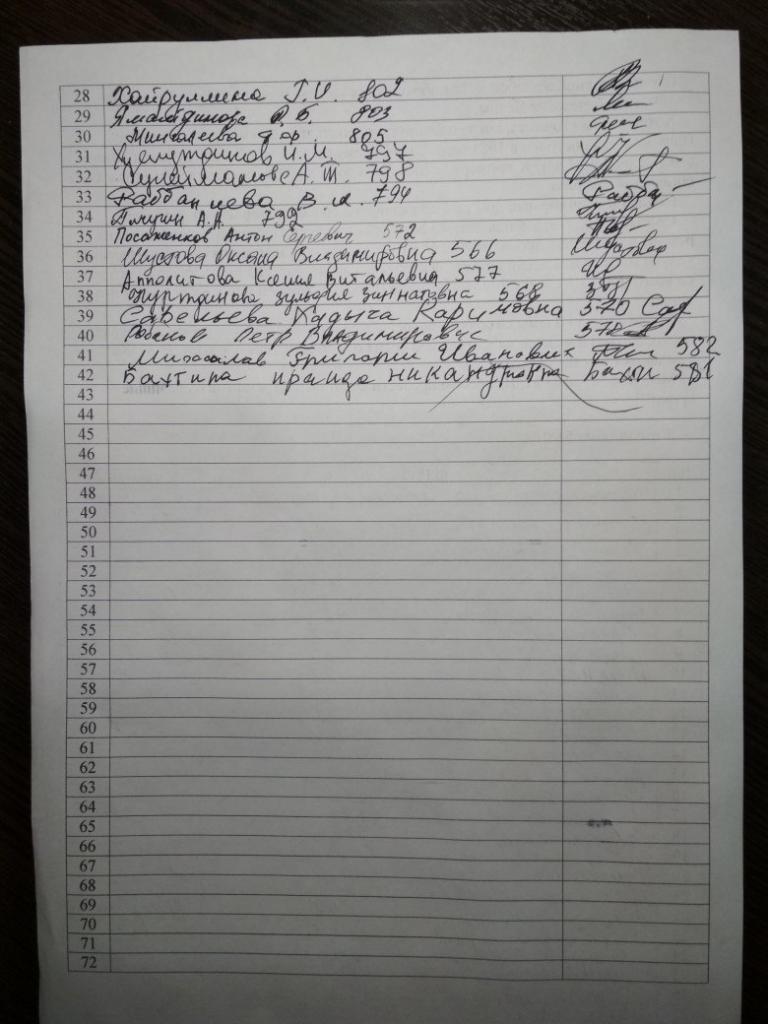 28 Хайруллина Г.И. 802
29 803
30 Мингалеева Ф Ф 805
31 И.М. 797
32 Сулейманова А.Т. 798
33 Раббаниева В.И. 794 Рабба
34 Пичугин А.А. 792
35 Посаженков Антон Сергеевич 572
36 Шустова Оксана Владимировна 566
37 Апполитова Ксения Витальевна 577
38 Зульфия Зиннатовна 568
39 Савельева Хадыча Каримовна 370 Сав
40 Петр Владимирович 578
41 Григорий Иванович 582
42 Бахтина Ираида Никандровна Бахти 581
43
44
45
46
47
48
49
50
51
52
53
54
55
56
57
58
59
60
61
62
63
64
65
66
67
68
69
70
71
72